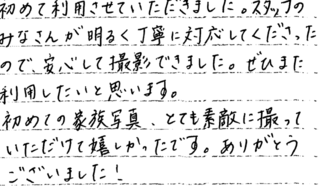 初めて利用させていただきました。スタッフの
みなさんが明るく丁寧に対応してくださった
ので、安心して撮影できました。ぜひまた
利用したいと思います。
初めての家族写真、とても素敵に撮って
いただけて嬉しかったです。ありがとう
ございました！